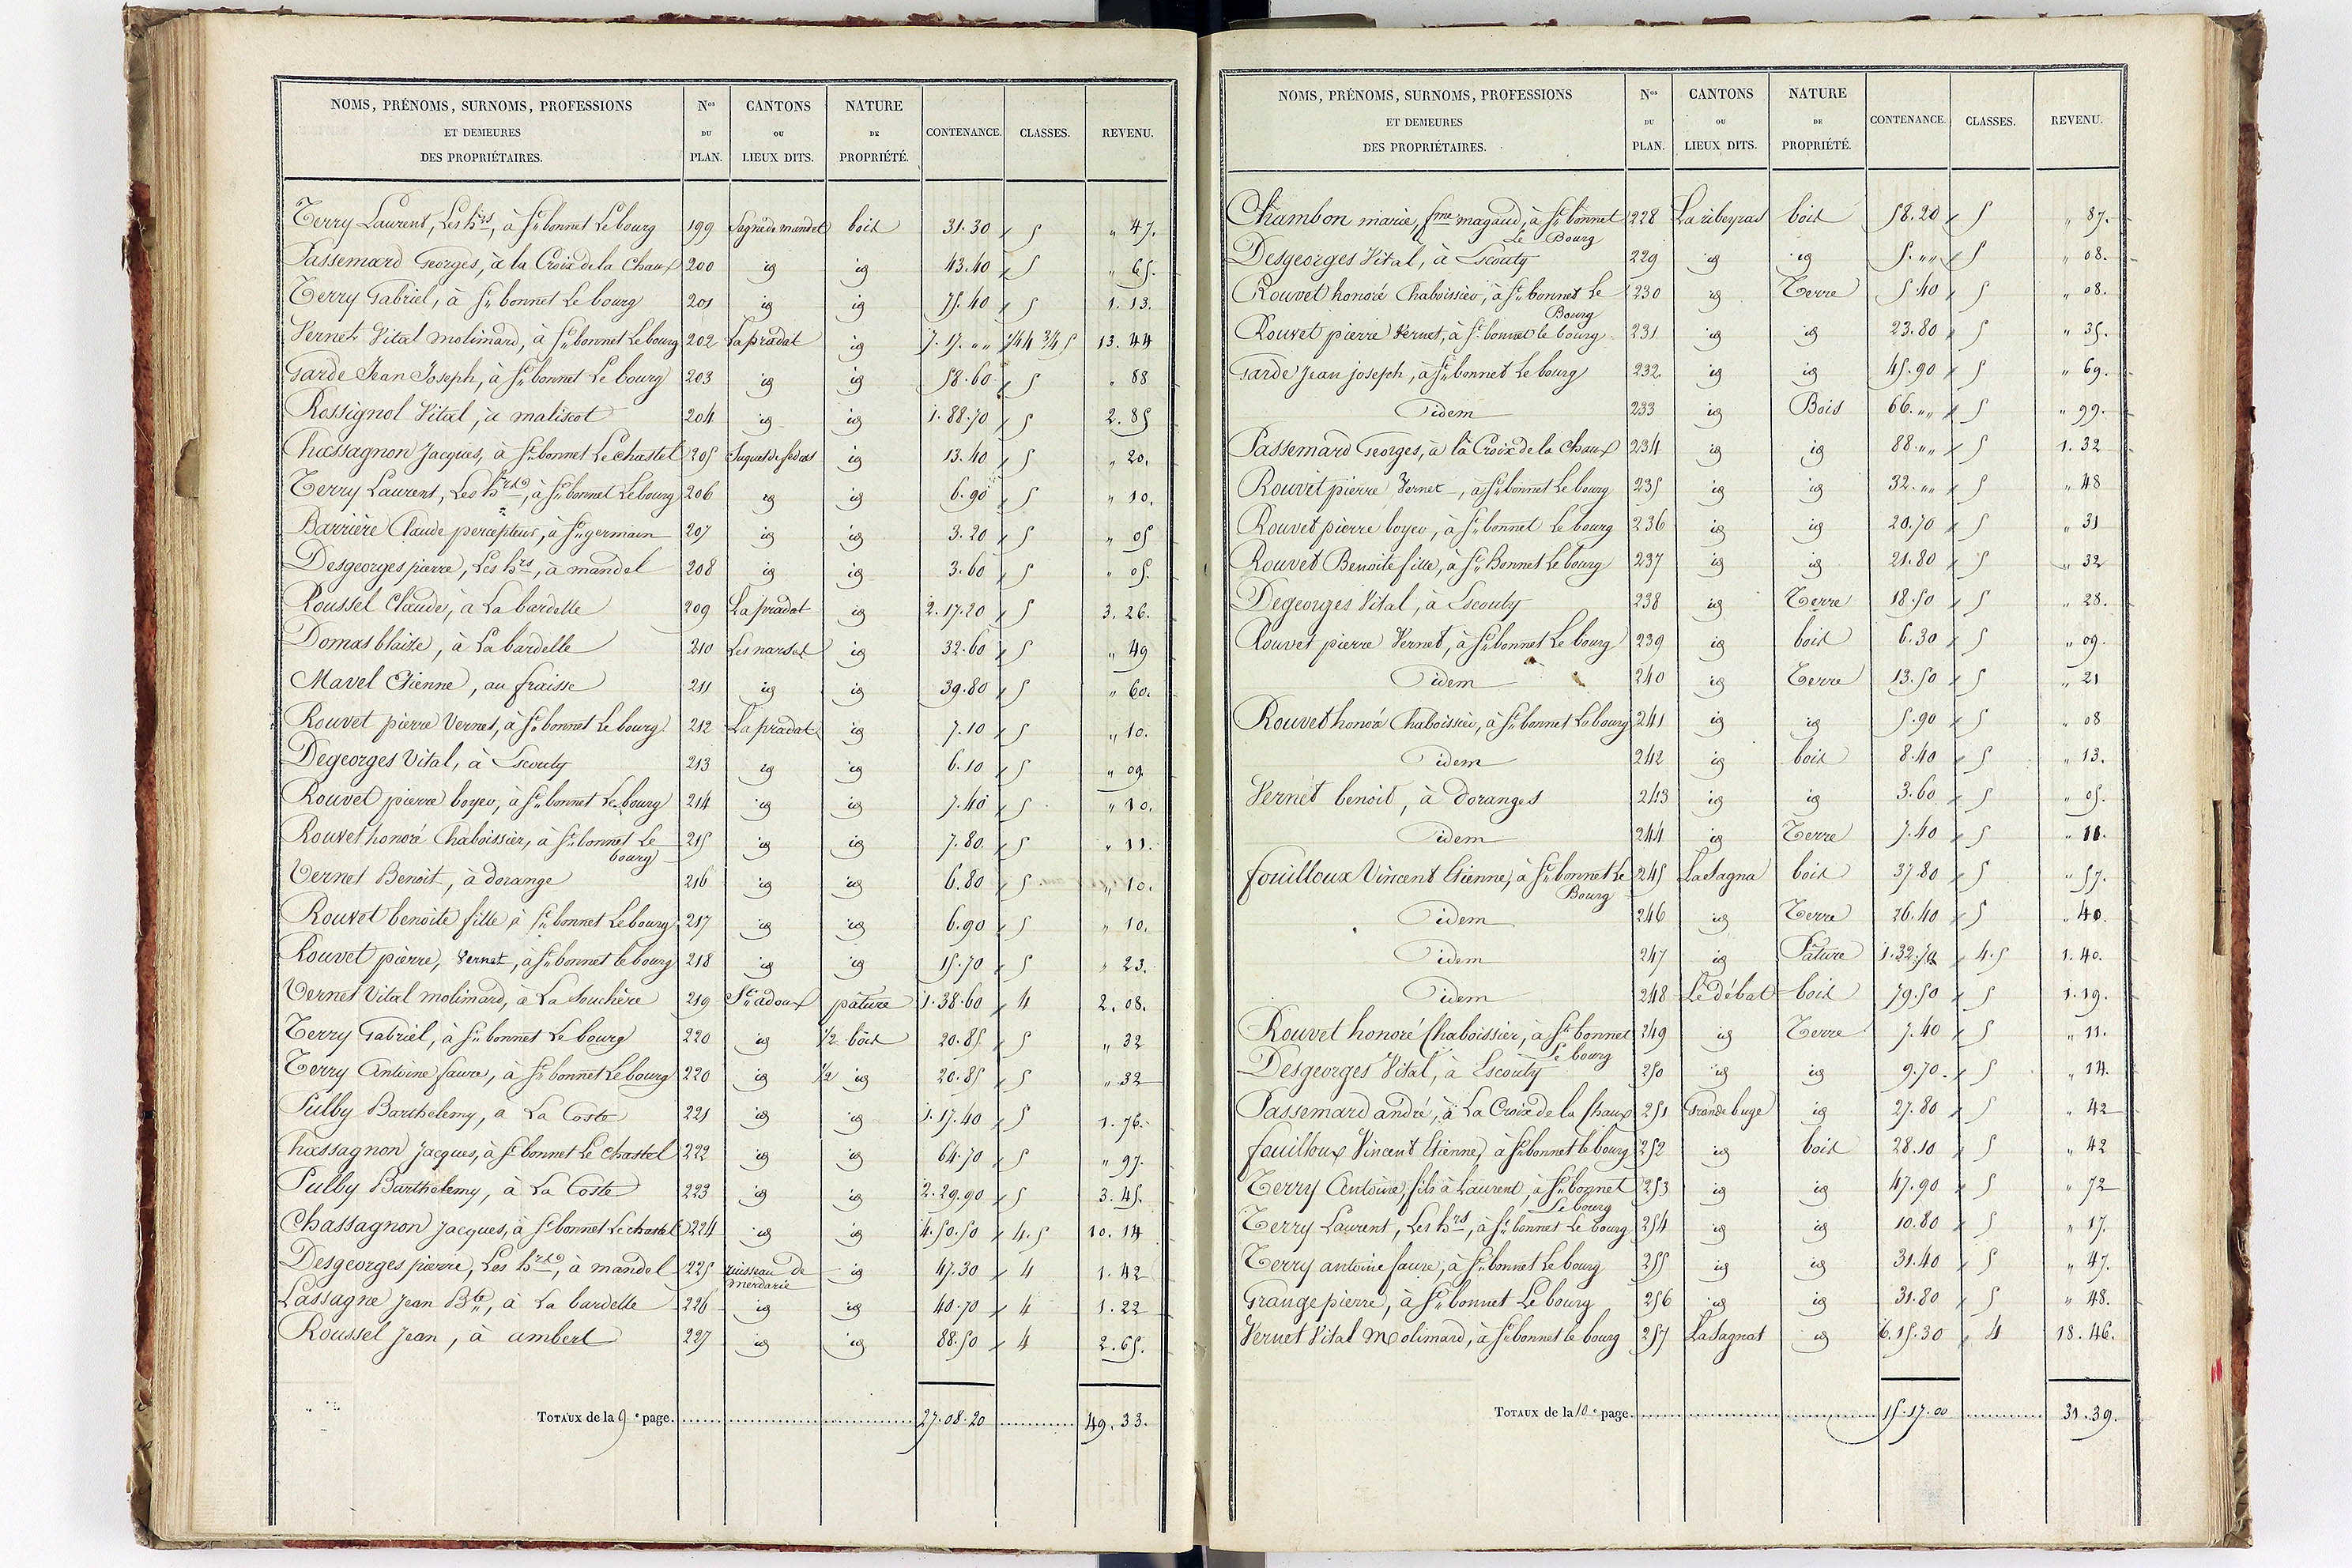 NOMS, PRÉNOMS, SURNOMS, PROFESSIONS ET DEMEURES DES PROPRIÉTAIRES. Nos DU PLAN. CANTONS OU LIEUX DITS. NATURE DE PROPRIÉTÉ. CONTENANCE. CLASSES. REVENU.
Terry Laurent, Les hrs, à St bonnet Le bourg 199 Sagne de mandel bois 31.30 5 " 47.
Passemard Georges, à la Croix de la Chaux 200 id id 43.40 5 " 65.
Terry Gabriel, à St bonnet Le bourg 201 id id 75.40 5 1. 13.
Vernet Vital molimard, à St bonnet Le bourg 202 La pradat id 7. 17. " " 1/4 4 3/4 5 13. 44
Garde Jean Joseph, à St bonnet Le bourg 203 id id 58.60 5 " 88
Rossignol Vital, à maliscot 204 id id 1. 88.70 5 2. 85
Chassagnon Jacques, à St bonnet Le Chastel 205 id 13.40 5 " 20.
Terry Laurent, Les hrs, à St bonnet Le bourg 206 id id 6.90 5 " 10.
Barrière Claude percepteur, à St germain 207 id id 3.20 5 " 05
Desgeorges pierre, Les hrs, à mandel 208 id id 3.60 5 " 05.
Roussel Claude, à La bardelle 209 La pradat id 2. 17.20 5 3. 26.
Domas blaise, à La bardelle 210 Les narses id 32.60 5 " 49
Mavel Etienne, au fraisse 211 id id 39.80 5 " 60.
Rouvet pierre Vernet, à St bonnet Le bourg 212 La pradat id 7.10 5 " 10.
Degeorges Vital, à Lscouty 213 id id 6.10 5 " 09.
Rouvet pierre boyer, à St bonnet Le bourg 214 id id 7.40 5 " 10.
Rouvet honoré Chaboissier, à St bonnet Le bourg 215 id id 7.80 5 " 11.
Vernet Benoit, à dorange 216 id id 6.80 5 " 10.
Rouvet benoite fille à St bonnet Le bourg 217 id id 6.90 5 " 10.
Rouvet pierre, Vernet, à St bonnet le bourg 218 id id 15.70 5 " 23.
Vernet Vital molimard, à La Souchère 219 St adoux pâture 1. 38.60 4 2. 08.
Terry Gabriel, à St bonnet Le bourg 220 id 1/2 bois 20.85 5 " 32
Terry Antoine faure, à St bonnet Le bourg 220 id 1/2 id 20.85 5 " 32
Pulby Barthelemy, à La Coste 221 id id 1. 17.40 5 1. 76.
Chassagnon Jacques, à St bonnet Le Chastel 222 id id 64.70 5 " 97.
Pulby Barthelemy, à La Coste 223 id id 2. 29.90 5 3. 45.
Chassagnon Jacques, à St bonnet Le Chastel 224 id id 4. 50. 50 4. 5 10. 14
Desgeorges pierre, Les hrs, à mandel 225 ruisseau de merdarie id 47.30 4 1. 42
Lassagne Jean Bte, à La bardelle 226 id id 40.70 4 1. 22
Roussel Jean, à ambert 227 id id 88.50 4 2. 65.
TOTAUX de la 9e page. 27.08.20 49. 33.
NOMS, PRÉNOMS, SURNOMS, PROFESSIONS ET DEMEURES DES PROPRIÉTAIRES. Nos DU PLAN. CANTONS OU LIEUX DITS. NATURE DE PROPRIÉTÉ. CONTENANCE. CLASSES. REVENU.
Chambon marie, fme magaud, à St bonnet Le Bourg 228 La ribeyras bois 58.20 5 " 87.
Desgeorges Vital, à Lscouty 229 id id 5. " " 5 " 08.
Rouvet honoré Chaboissier, à St bonnet Le Bourg 230 id Terre 5.40 5 " 08.
Rouvet pierre Vernet, à St bonnet le bourg 231 id id 23.80 5 " 35.
Garde Jean joseph, à St bonnet Le bourg 232 id id 45.90 5 " 69.
idem 233 id Bois 66. " " 5 " 99.
Passemard Georges, à la Croix de la Chaux 234 id id 88. " " 5 1. 32
Rouvet pierre Vernet, à St bonnet Le bourg 235 id id 32. " " 5 " 48
Rouvet pierre boyer, à St bonnet Le bourg 236 id id 20.70 5 " 31
Rouvet Benoite fille, à St Bonnet Le bourg 237 id id 21.80 5 " 32
Degeorges Vital, à Lscouty 238 id Terre 18.50 5 " 28.
Rouvet pierre Vernet, à St bonnet Le bourg 239 id bois 6.30 5 " 09.
idem 240 id Terre 13.50 5 " 21
Rouvet honoré Chaboissier, à St bonnet Le bourg 241 id id 5.90 5 " 08
idem 242 id bois 8.40 5 " 13.
Vernet benoit, à doranges 243 id id 3.60 5 " 05.
idem 244 id Terre 7.40 5 " 11.
fouilloux Vincent Etienne, à St bonnet Le Bourg 245 La Sagna bois 37.80 5 " 57.
idem 246 id Terre 26.40 5 " 40.
idem 247 id Pâture 1.32.50 4.5 1. 40.
idem 248 Le débat bois 79.50 5 1. 19.
Rouvet honoré Chaboissier, à St bonnet Le bourg 249 id Terre 7.40 5 " 11.
Desgeorges Vital, à Lscouty 250 id id 9.70 5 " 14.
Passemard andré, à La Croix de la Chaux 251 Grande buge id 27.80 5 " 42
fouilloux Vincent Etienne, à St bonnet le bourg 252 id bois 28.10 5 " 42
Terry Antoine, fils à Laurent, à St bonnet Le bourg 253 id id 47.90 5 " 72
Terry Laurent, Les hrs, à St bonnet Le bourg 254 id id 10.80 5 " 17.
Terry antoine faure, à St bonnet Le bourg 255 id id 31.40 5 " 47.
Grange pierre, à St bonnet Le bourg 256 id id 31.80 5 " 48.
Vernet Vital Molimard, à St bonnet le bourg 257 La Sagnas id 6.15.30 4 18. 46.
TOTAUX de la 10e page. 15.17.00 31.39.